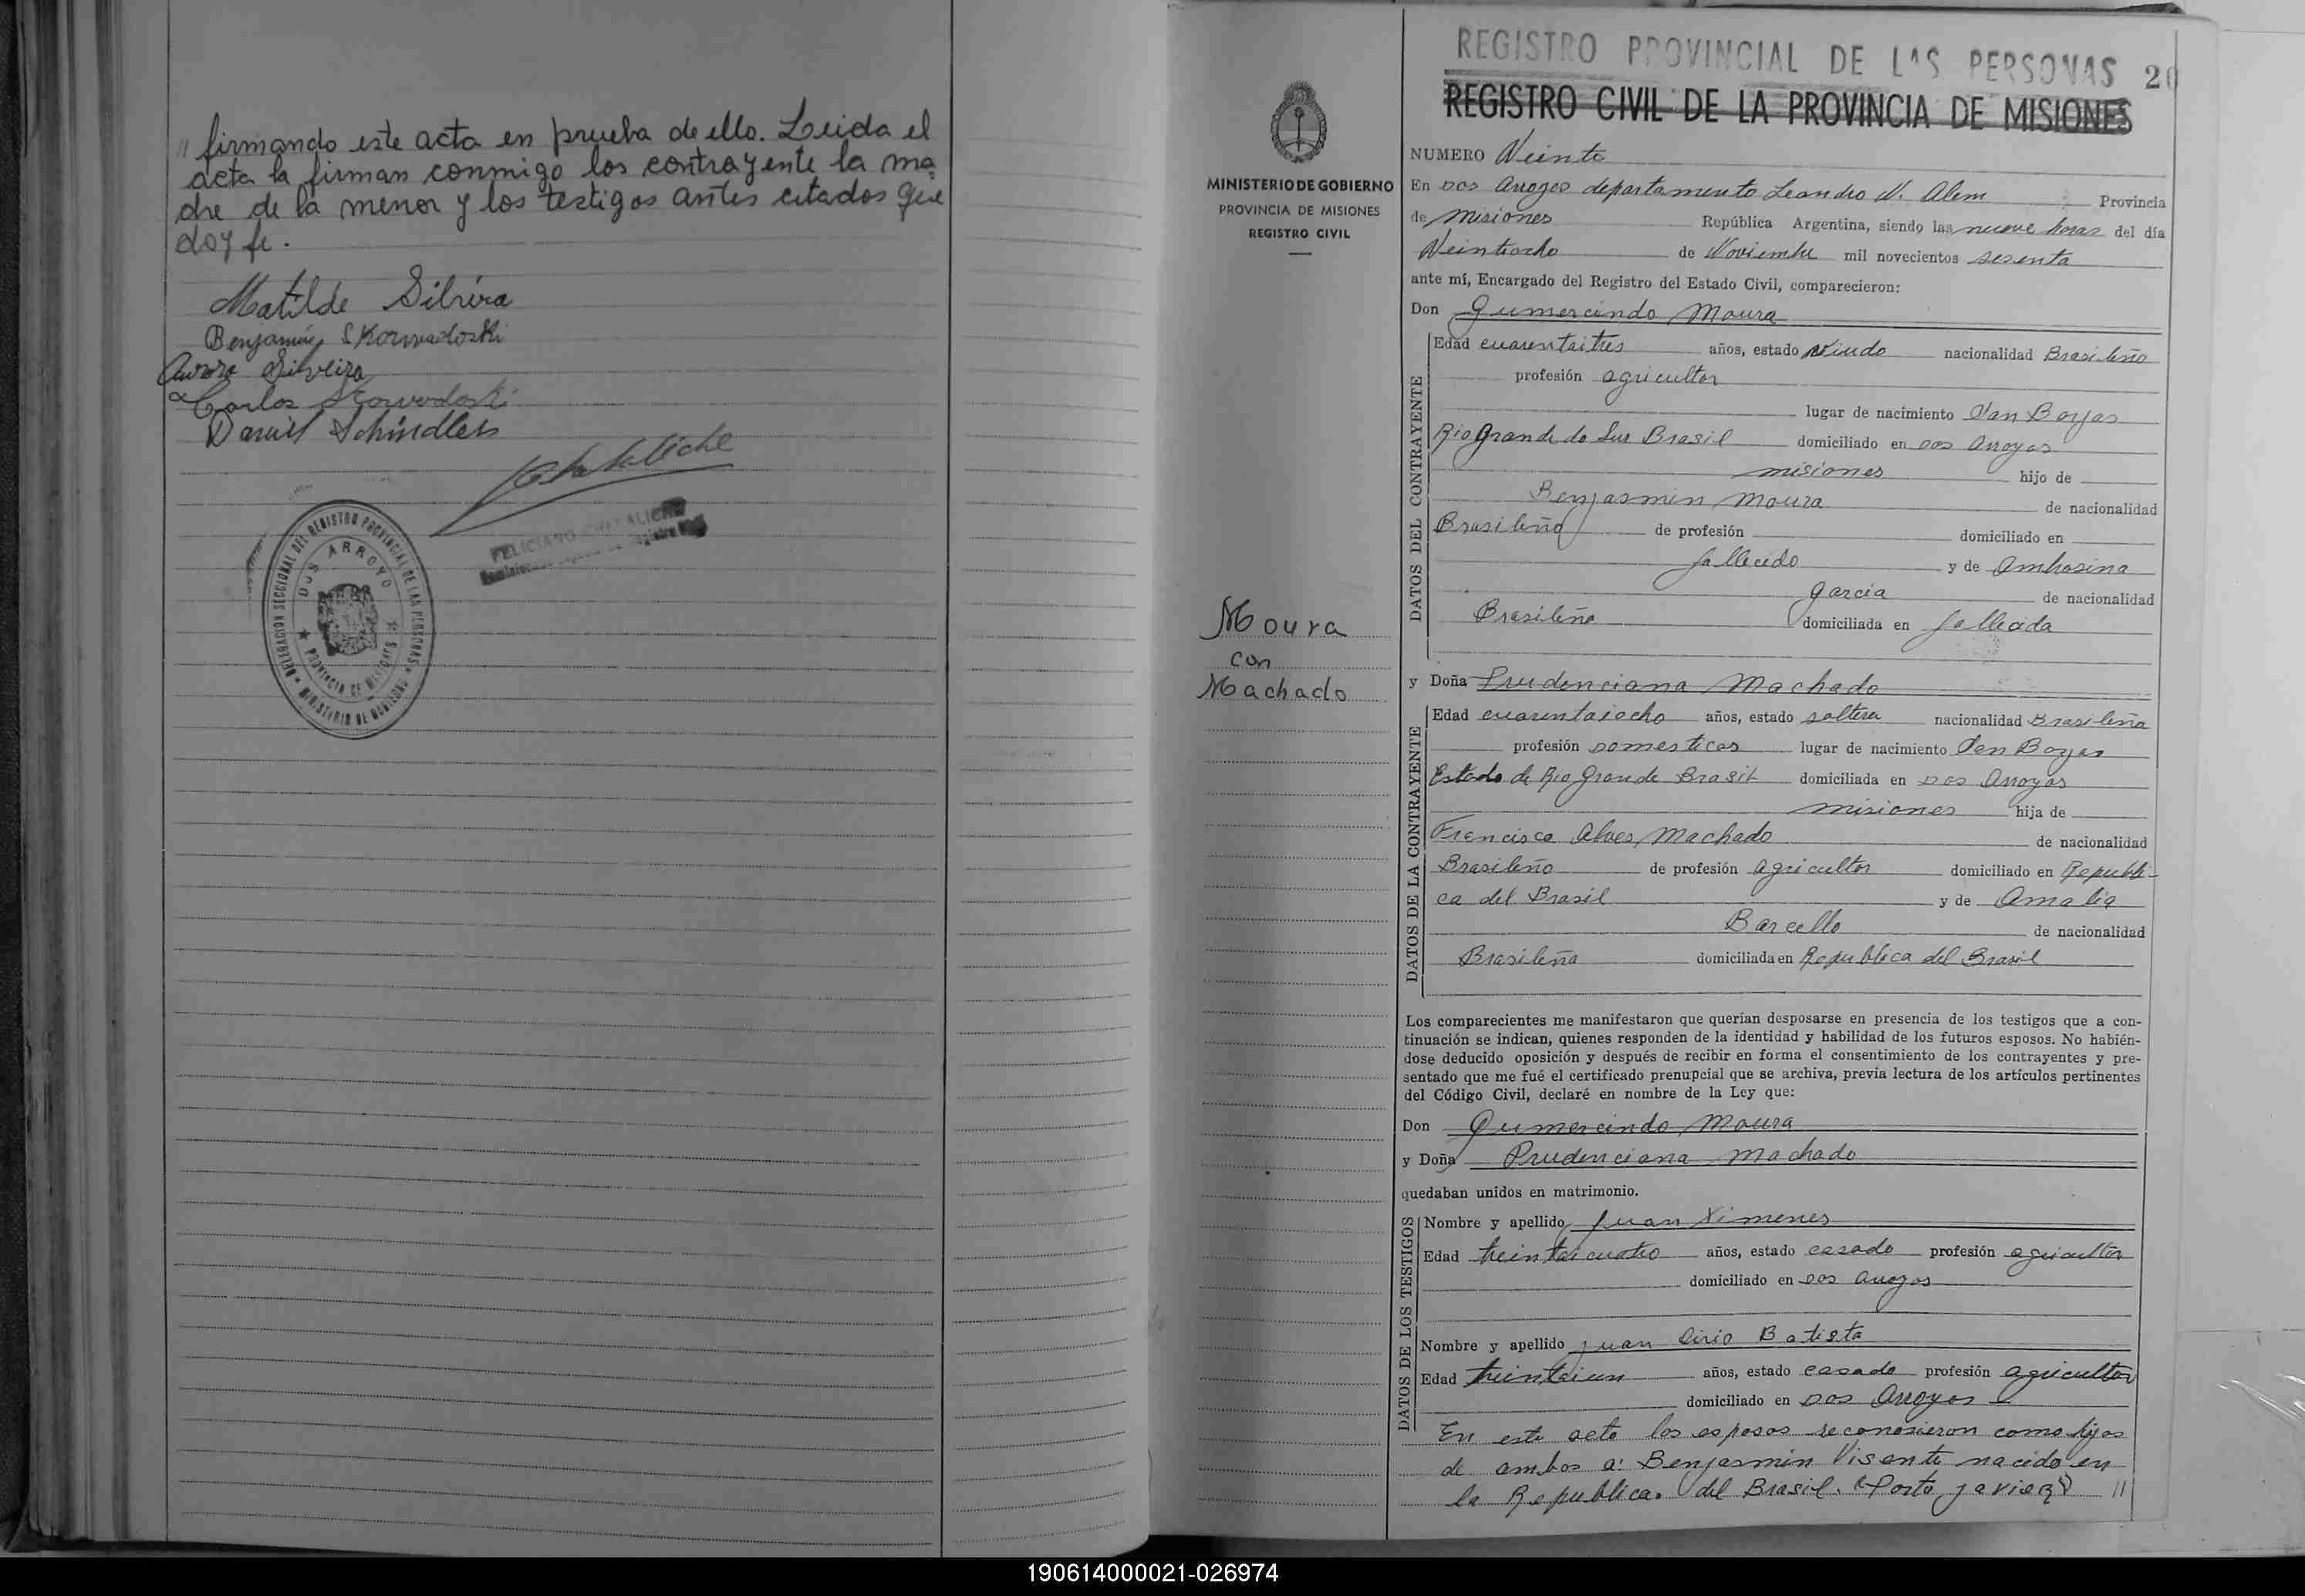 " firmando este acta en prueba de ello. Leida el
acta la firman conmigo los contrayente la ma=
dre de la menor y los testigos antes citados que
doy fe.
Matilde Silvira
Benjamín Skowradoski
Aurora Silveira
Carlos Skowrodoski
Daniel Schindler
FELICIANO
DELEGACION SECCIONAL DEL REGISTRO PROVINCIAL DE LAS PERSONAS
DOS ARROYO
PROVINCIA DE MISIONES
MINISTERIO DE GOBIERNO
REGISTRO PROVINCIAL DE LAS PERSONAS
20
REGISTRO CIVIL DE LA PROVINCIA DE MISIONES
MINISTERIO DE GOBIERNO
PROVINCIA DE MISIONES
REGISTRO CIVIL
Moura
con
Machado
NUMERO Veinte
En Dos Arroyos departamento Leandro N. Alem Provincia
de Misiones República Argentina, siendo las nueve horas del día
Veintiocho de Noviembre mil novecientos sesenta
ante mí, Encargado del Registro del Estado Civil, comparecieron:
Don Gumercindo Moura
DATOS DEL CONTRAYENTE
Edad cuarentaitres años, estado viudo nacionalidad Brasileño
profesión agricultor
lugar de nacimiento San Boyas
Rio Grande do Sur Brasil domiciliado en Dos Arroyos
misiones hijo de
Benjasmin Moura de nacionalidad
Brasileño de profesión domiciliado en
fallecido y de Ambrosina
Garcia de nacionalidad
Brasileña domiciliada en fallecida
y Doña Prudenciana Machado
DATOS DE LA CONTRAYENTE
Edad cuarentaiocho años, estado soltera nacionalidad Brasileña
profesión Domesticas lugar de nacimiento San Boyas
Estado de Rio Grande Brasil domiciliada en Dos Arroyos
misiones hija de
Francisco Alves Machado de nacionalidad
Brasileño de profesión agricultor domiciliado en Republi-
ca del Brasil y de Amalia
Barcello de nacionalidad
Brasileña domiciliada en Republica del Brasil
Los comparecientes me manifestaron que querían desposarse en presencia de los testigos que a con-
tinuación se indican, quienes responden de la identidad y habilidad de los futuros esposos. No habién-
dose deducido oposición y después de recibir en forma el consentimiento de los contrayentes y pre-
sentado que me fué el certificado prenupcial que se archiva, previa lectura de los artículos pertinentes
del Código Civil, declaré en nombre de la Ley que:
Don Gumercindo Moura
y Doña Prudenciana Machado
quedaban unidos en matrimonio.
DATOS DE LOS TESTIGOS
Nombre y apellido Juan Ximenes
Edad treintaicuatro años, estado casado profesión agricultor
domiciliado en Dos Arroyos
Nombre y apellido Juan Cirio Batista
Edad treintaiun años, estado casado profesión agricultor
domiciliado en Dos Arroyos
En este acto los esposos reconosieron como hijos
de ambos a: Benjasmin Visente nacido en
la Republica. del Brasil. (Porto javier) "
190614000021-026974